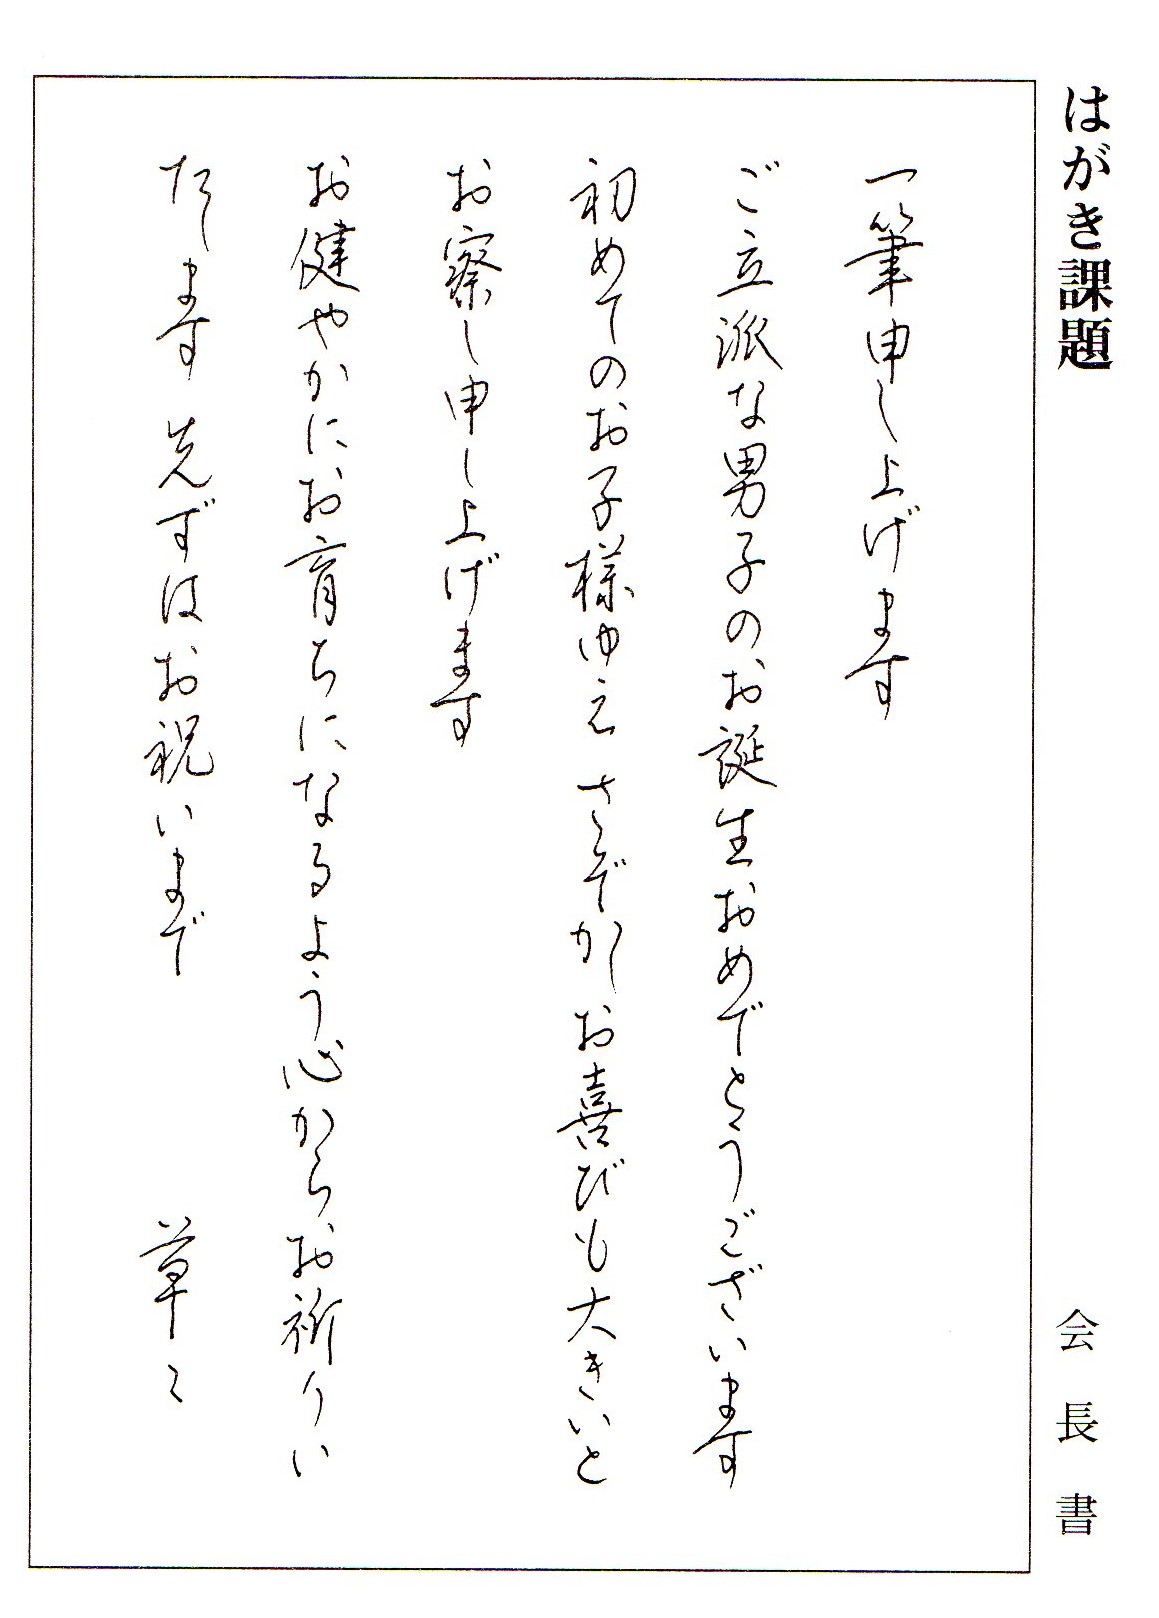 はがき課題
会長書
一筆申し上げます
ご立派な男子のお誕生おめでとうございます
初めてのお子様ゆえ さぞかしお喜びも大きいと
お察し申し上げます
お健やかにお育ちになるよう心からお祈りい
たします 先ずはお祝いまで
草々